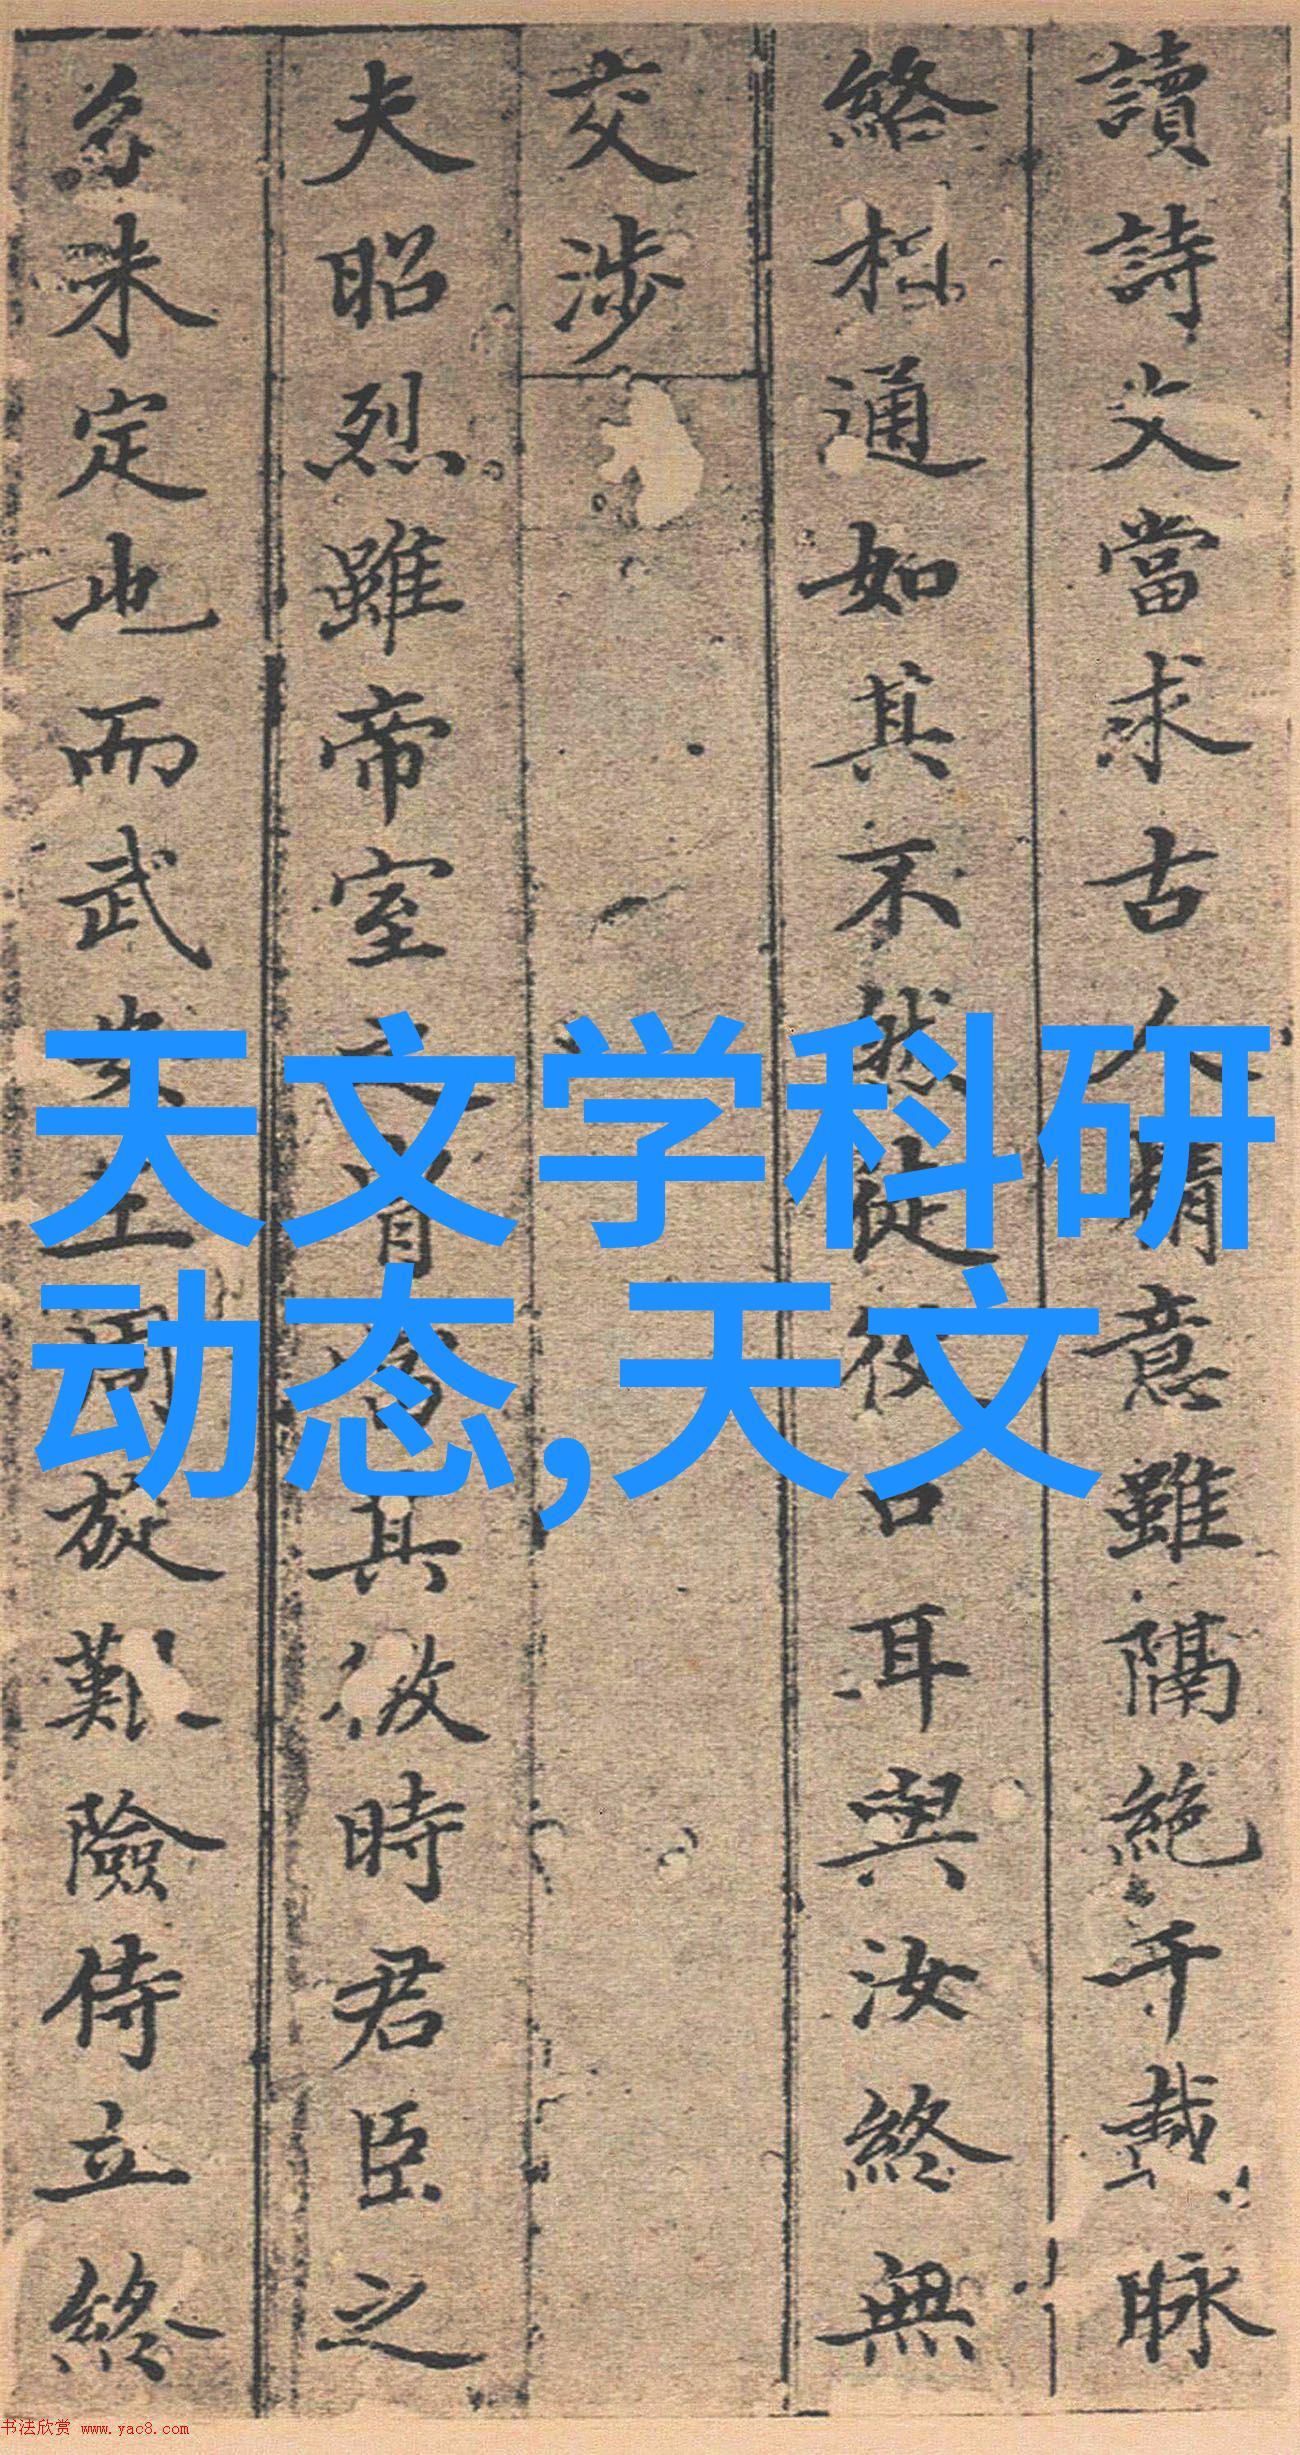 讀詩文當求古人精意雖隔絶千載脉
絡相通如其不然徒役口耳與汝終無
交涉
夫昭烈雖帝室之胄其時君臣之
未定也而武 周旋難險侍立終
天文学科研
动态,天文
书法欣赏 www.yac8.com